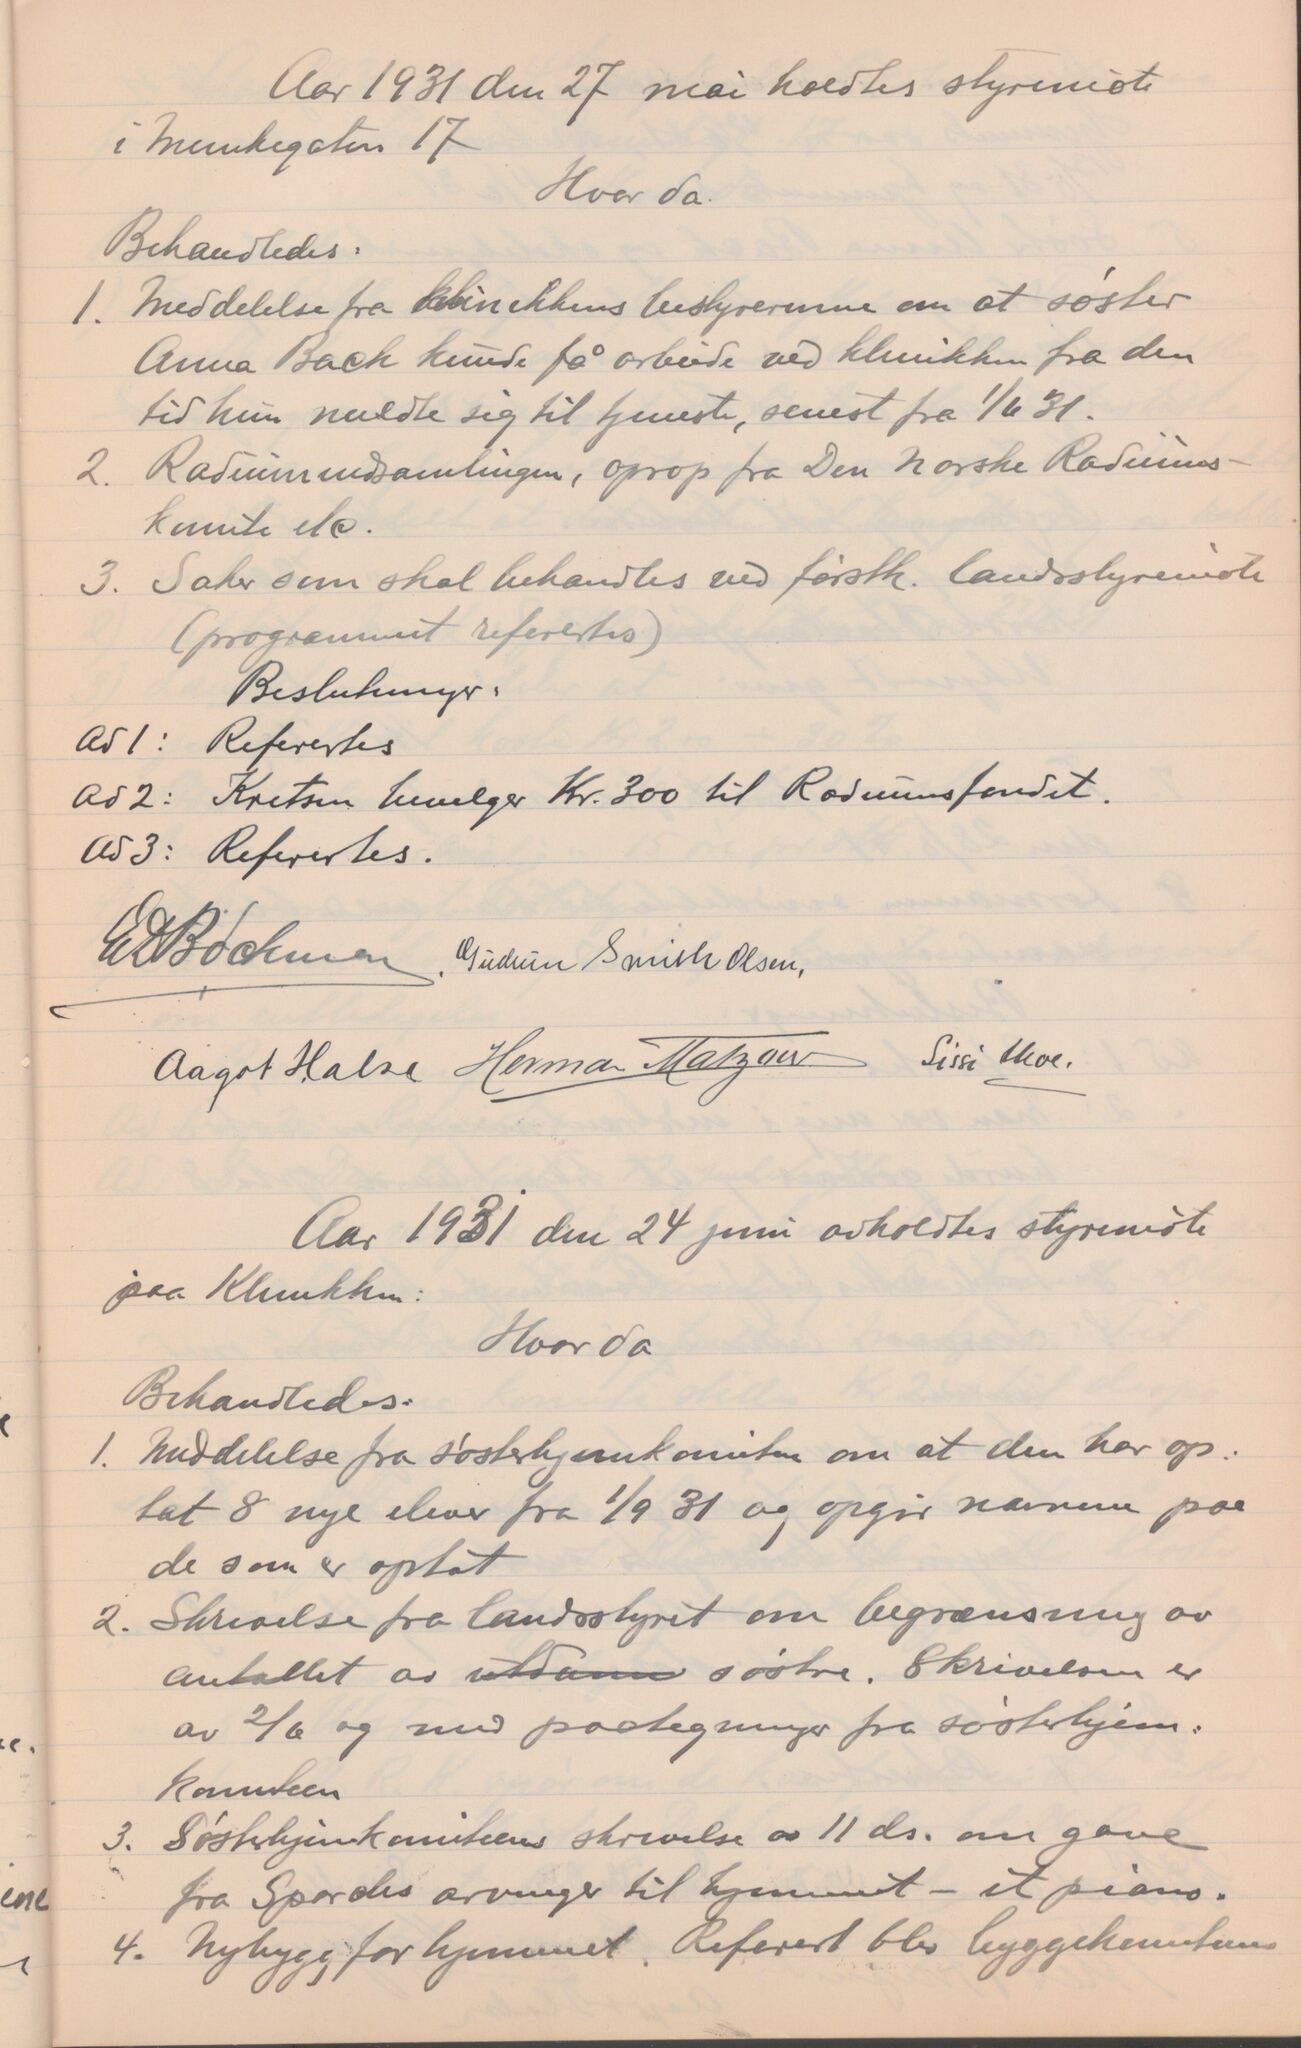 Aar 1931 den 27 mai holdtes styremøte
i Munkegaten 17
Hvor da.
Behandledes:
1. Meddelelse fra klinikkens bestyrerinne om at søster
Anna Bach kunde få arbeide ved klinikken fra den
tid hun meldte sig til tjeneste, senest fra 1/6 31.
2. Radiumindsamlingen, oprop fra Den norske Radiums-
komite etc.
3. Saker som skal behandles ved førstk. landsstyremøte
(programmet refereres)
Beslutninger:
Ad 1: Refereres
Ad 2: Kretsen bevilger Kr. 300 til Radiumsfondet.
Ad 3: Refereres.
Bachman, Gudrun Smith Olsen,
Aagot Halse Herman Matzow Sissi Moe.
Aar 1931 den 24 juni avholdtes styremøte
paa Klinikken:
Hvor da
Behandledes:
1. Meddelelse fra søsterhjemkomiteen om at den har op-
tat 8 nye elever fra 1/9 31 og opgir navnene paa
de som er optat
2. Skrivelse fra landsstyret om begrænsning av
antallet av utdann søstre. Skrivelsen er
av 2/6 og med paategninger fra søsterhjem-
komiteen
3. Søsterhjemkomiteens skrivelse av 11 ds. om gave
fra arvinger til hjemmet - et piano.
4. Nybygg for hjemmet. Referert blev byggekomiteens